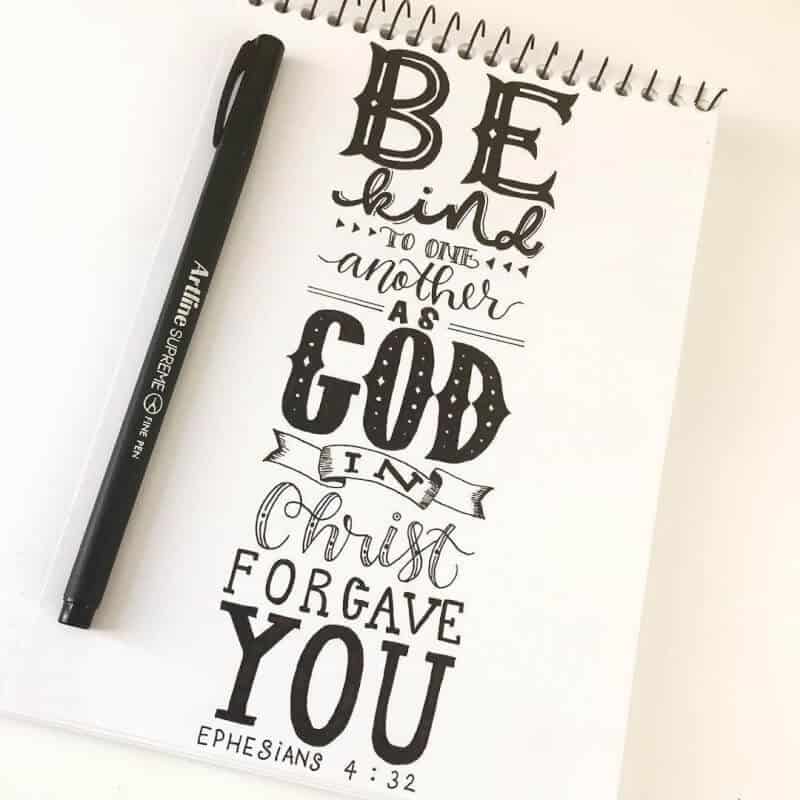 BE
kind
TO ONE
another
AS
GOD
IN
Christ
FORGAVE
YOU
EPHESiANS 4:32
Artline SUPREME FINE PEN